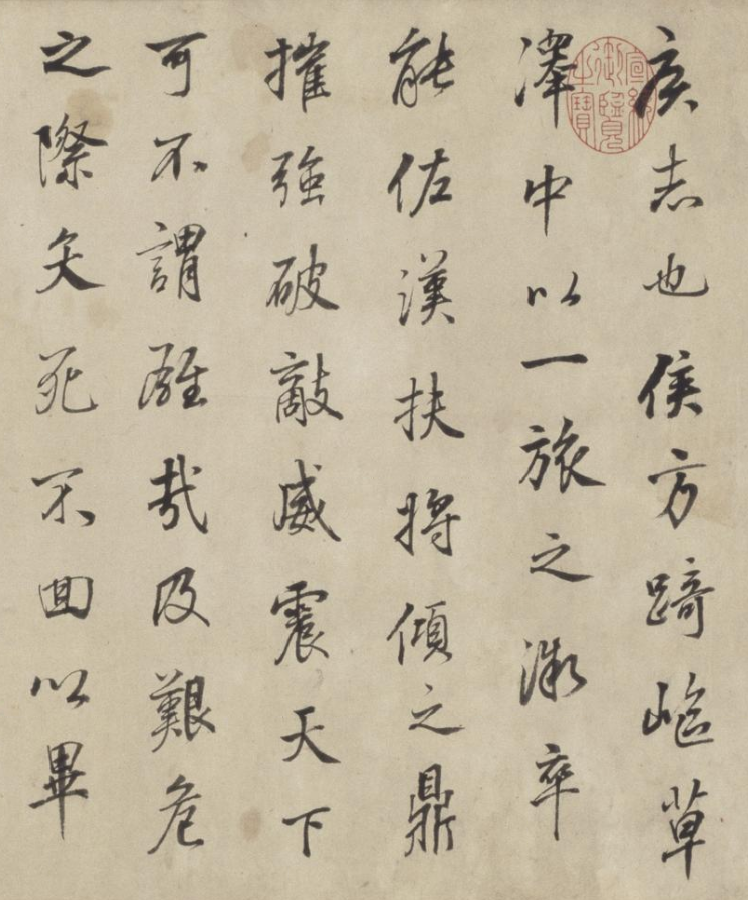 矦志也侯方踦嶇草
澤中以一旅之微卒
能佐漢扶將傾之鼎
摧強破敵威震天下
可不謂雄哉及艱危
之際矢死不回以畢
宣統御覽之寶